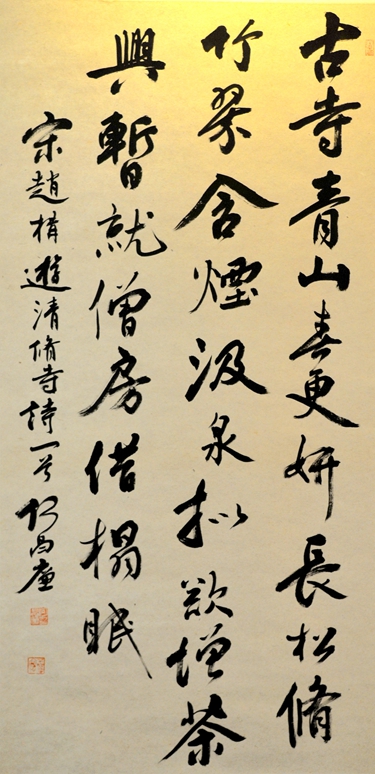 古寺青山春更妍長松脩
竹翠含煙汲泉拟欲增茶
興暫就僧房借榻眠
宋趙構遊清脩寺詩一首